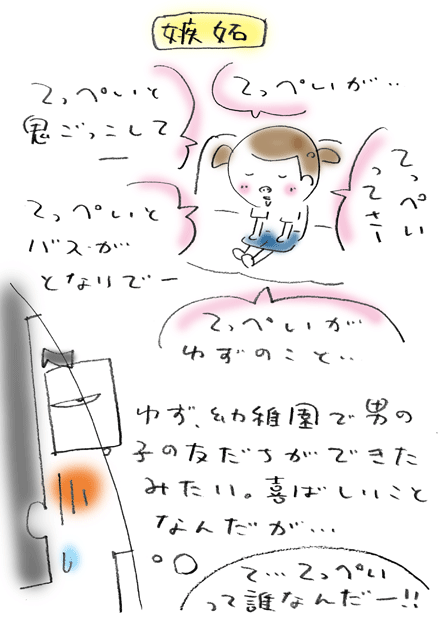 嫉妬
てっぺいが‥
てっぺいと
鬼ごっこして
ー
てっぺい
ってさー
てっぺいと
バスが
となりでー
てっぺいが…
ゆずのこと‥
ゆず、幼稚園で男の
子の友だちができた
みたい。喜ばしいこと
なんだが…
て…てっぺい
って誰なんだー!!